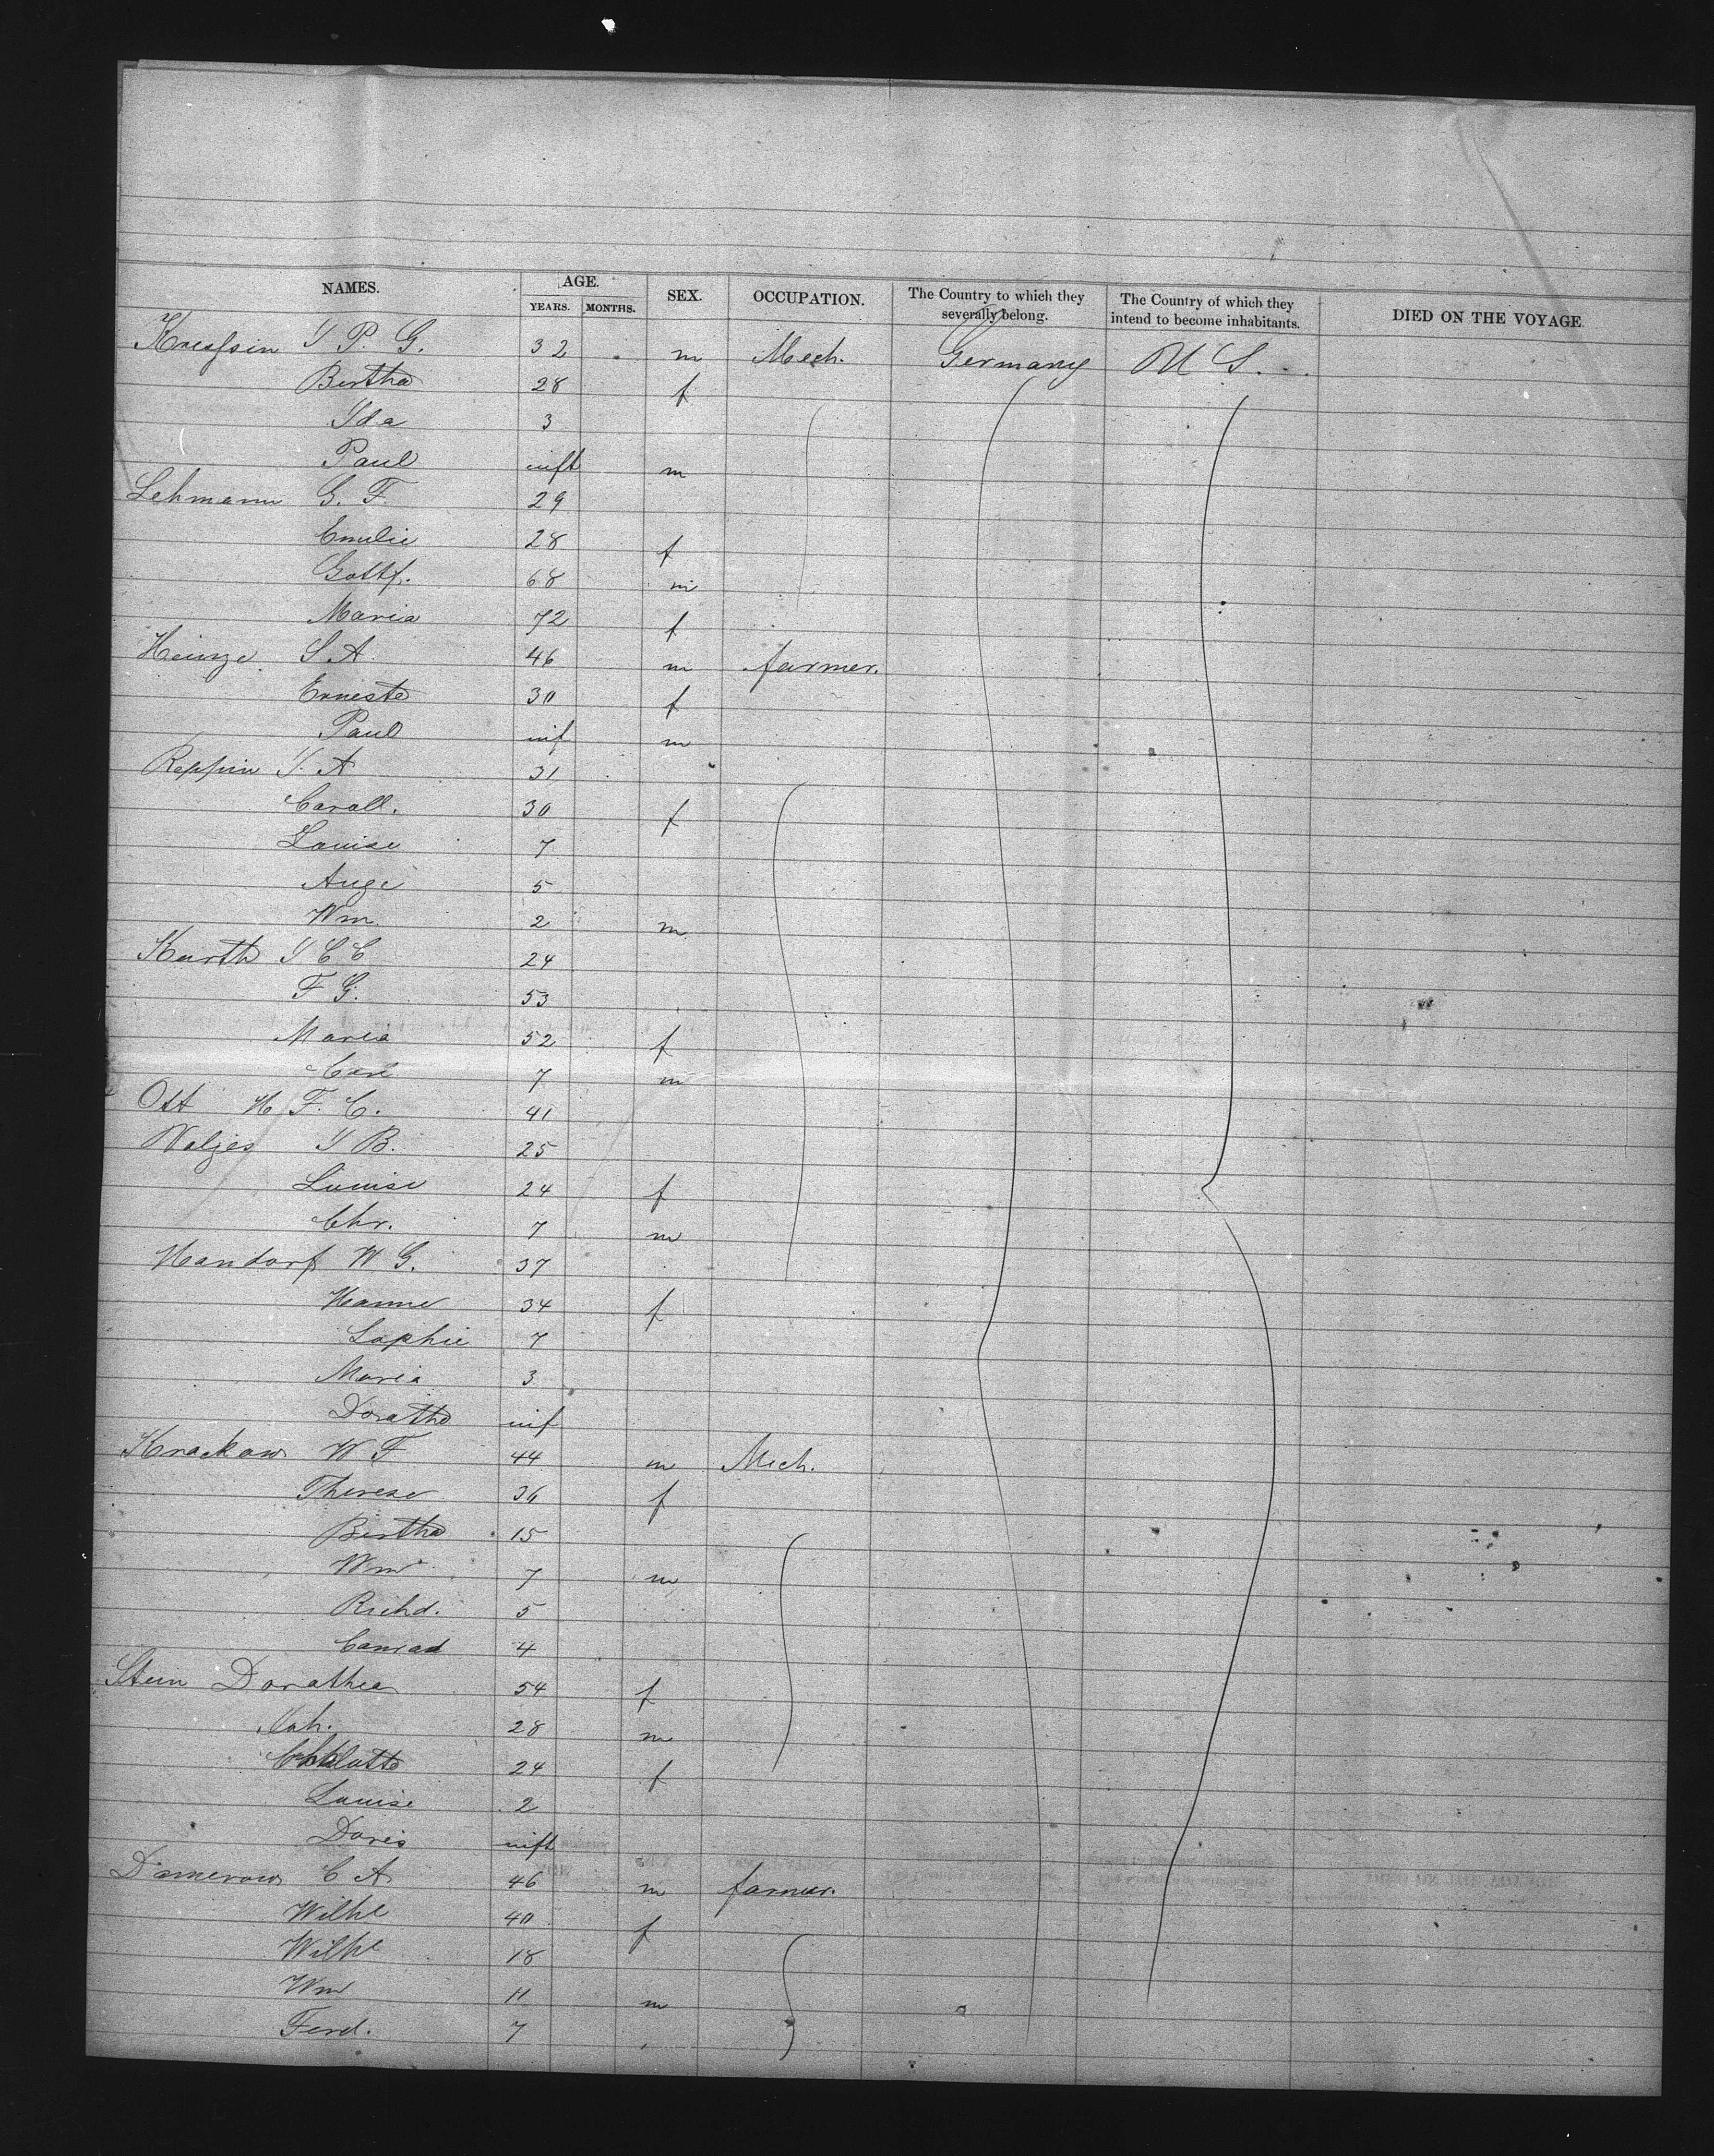 NAMES. AGE. SEX. OCCUPATION. The Country to which they severally belong. The Country of which they intend to become inhabitants. DIED ON THE VOYAGE.
YEARS. MONTHS.
Kressin I P. G. 32 m Mech. Germany U S.
Bertha 28 f
Ida 3
Paul inft m
Lehmann G. F. 29
Emilie 28 f
Gottf. 68 m
Maria 72 f
Heinze S A. 46 m farmer.
Erneste 30 f
Paul inf m
Reppin I. A 31
Caroll. 30 f
Louise 7
Auge 5
Wm 2 m
Karth I C C 24
F G. 53
Maria 52 f
Carl 7 m
Ott H F. C. 41
Waljes I B. 25
Louise 24 f
Chr. 7 m
Handorf W G. 37
Hanne 34 f
Sophie 7
Maria 3
Doratha inf
Krackow W F 44 m Mech.
Therese 36 f
Bertha 15
Wm 7 m
Richd. 5
Conrad 4
Stein Dorathea 54 f
Joh. 28 m
24 f
Louise 2
Doris inft
Damerow C A 46 m farmer.
Wilhe 40 f
Wilhe 18
Wm 11 m
Ferd. 7